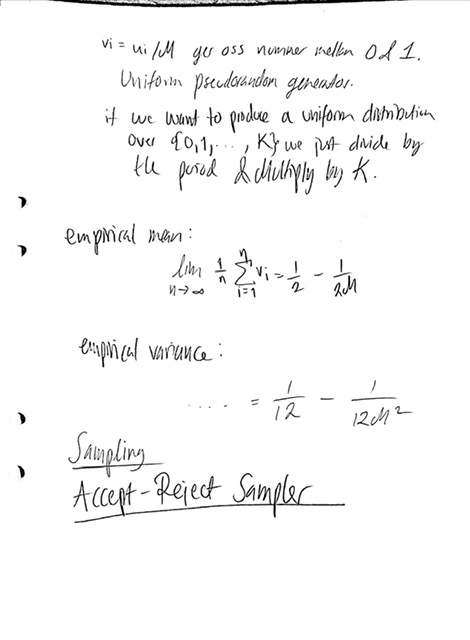 vi = ui/M ger oss nummer mellan 0 & 1.
Uniform pseudorandom generator.
if we want to produce a uniform distribution
over {0,1,...,K} we just divide by
the period & Multiply by K.
empirical mean:
lim n→∞ 1/n ∑ i=1 n vi = 1/2 - 1/2M
empirical variance:
.... = 1/12 - 1/12M²
Sampling
Accept-Reject Sampler